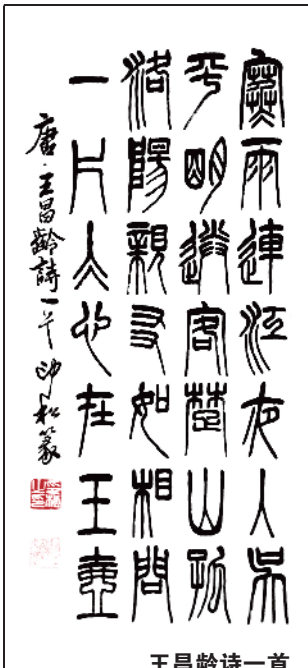 寒雨連江夜入吳
平明送客楚山孤
洛陽親友如相問
一片冰心在玉壺
唐·王昌齡詩一首 松篆
王昌龄诗一首